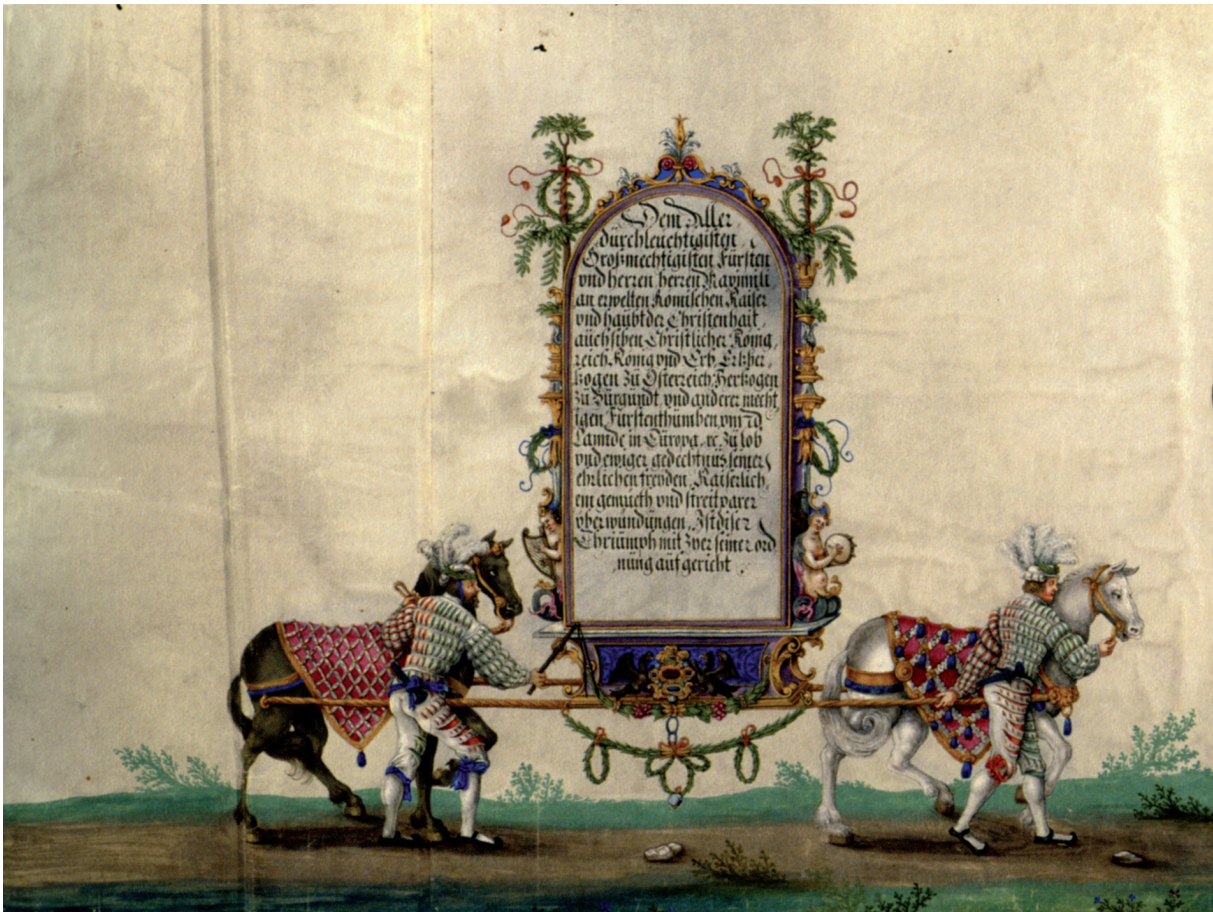 Dem Aller
durchleuchtigisten
Großmechtigisten Fürsten
vnd herren herren Maximili
an erwelten Römischen Kaiser
vnd haubt der Christenhait,
auch siben Christlicher Konig,
reich Konig vnd Erb Ertzher
tzogen zu Osterreich Hertzogen
zu Burgundt, vnd anderer mecht
igen Fürstenthumben vnnd
Lannde in Europa, rc. zu lob
vnd ewiger gedechtnus seiner
ehrlichen freyden, Kaiserlich,
em gemueth vnd streitparer
vberwundungen, Ist diser
Thriumph mit
seiner ord
nung auf gericht